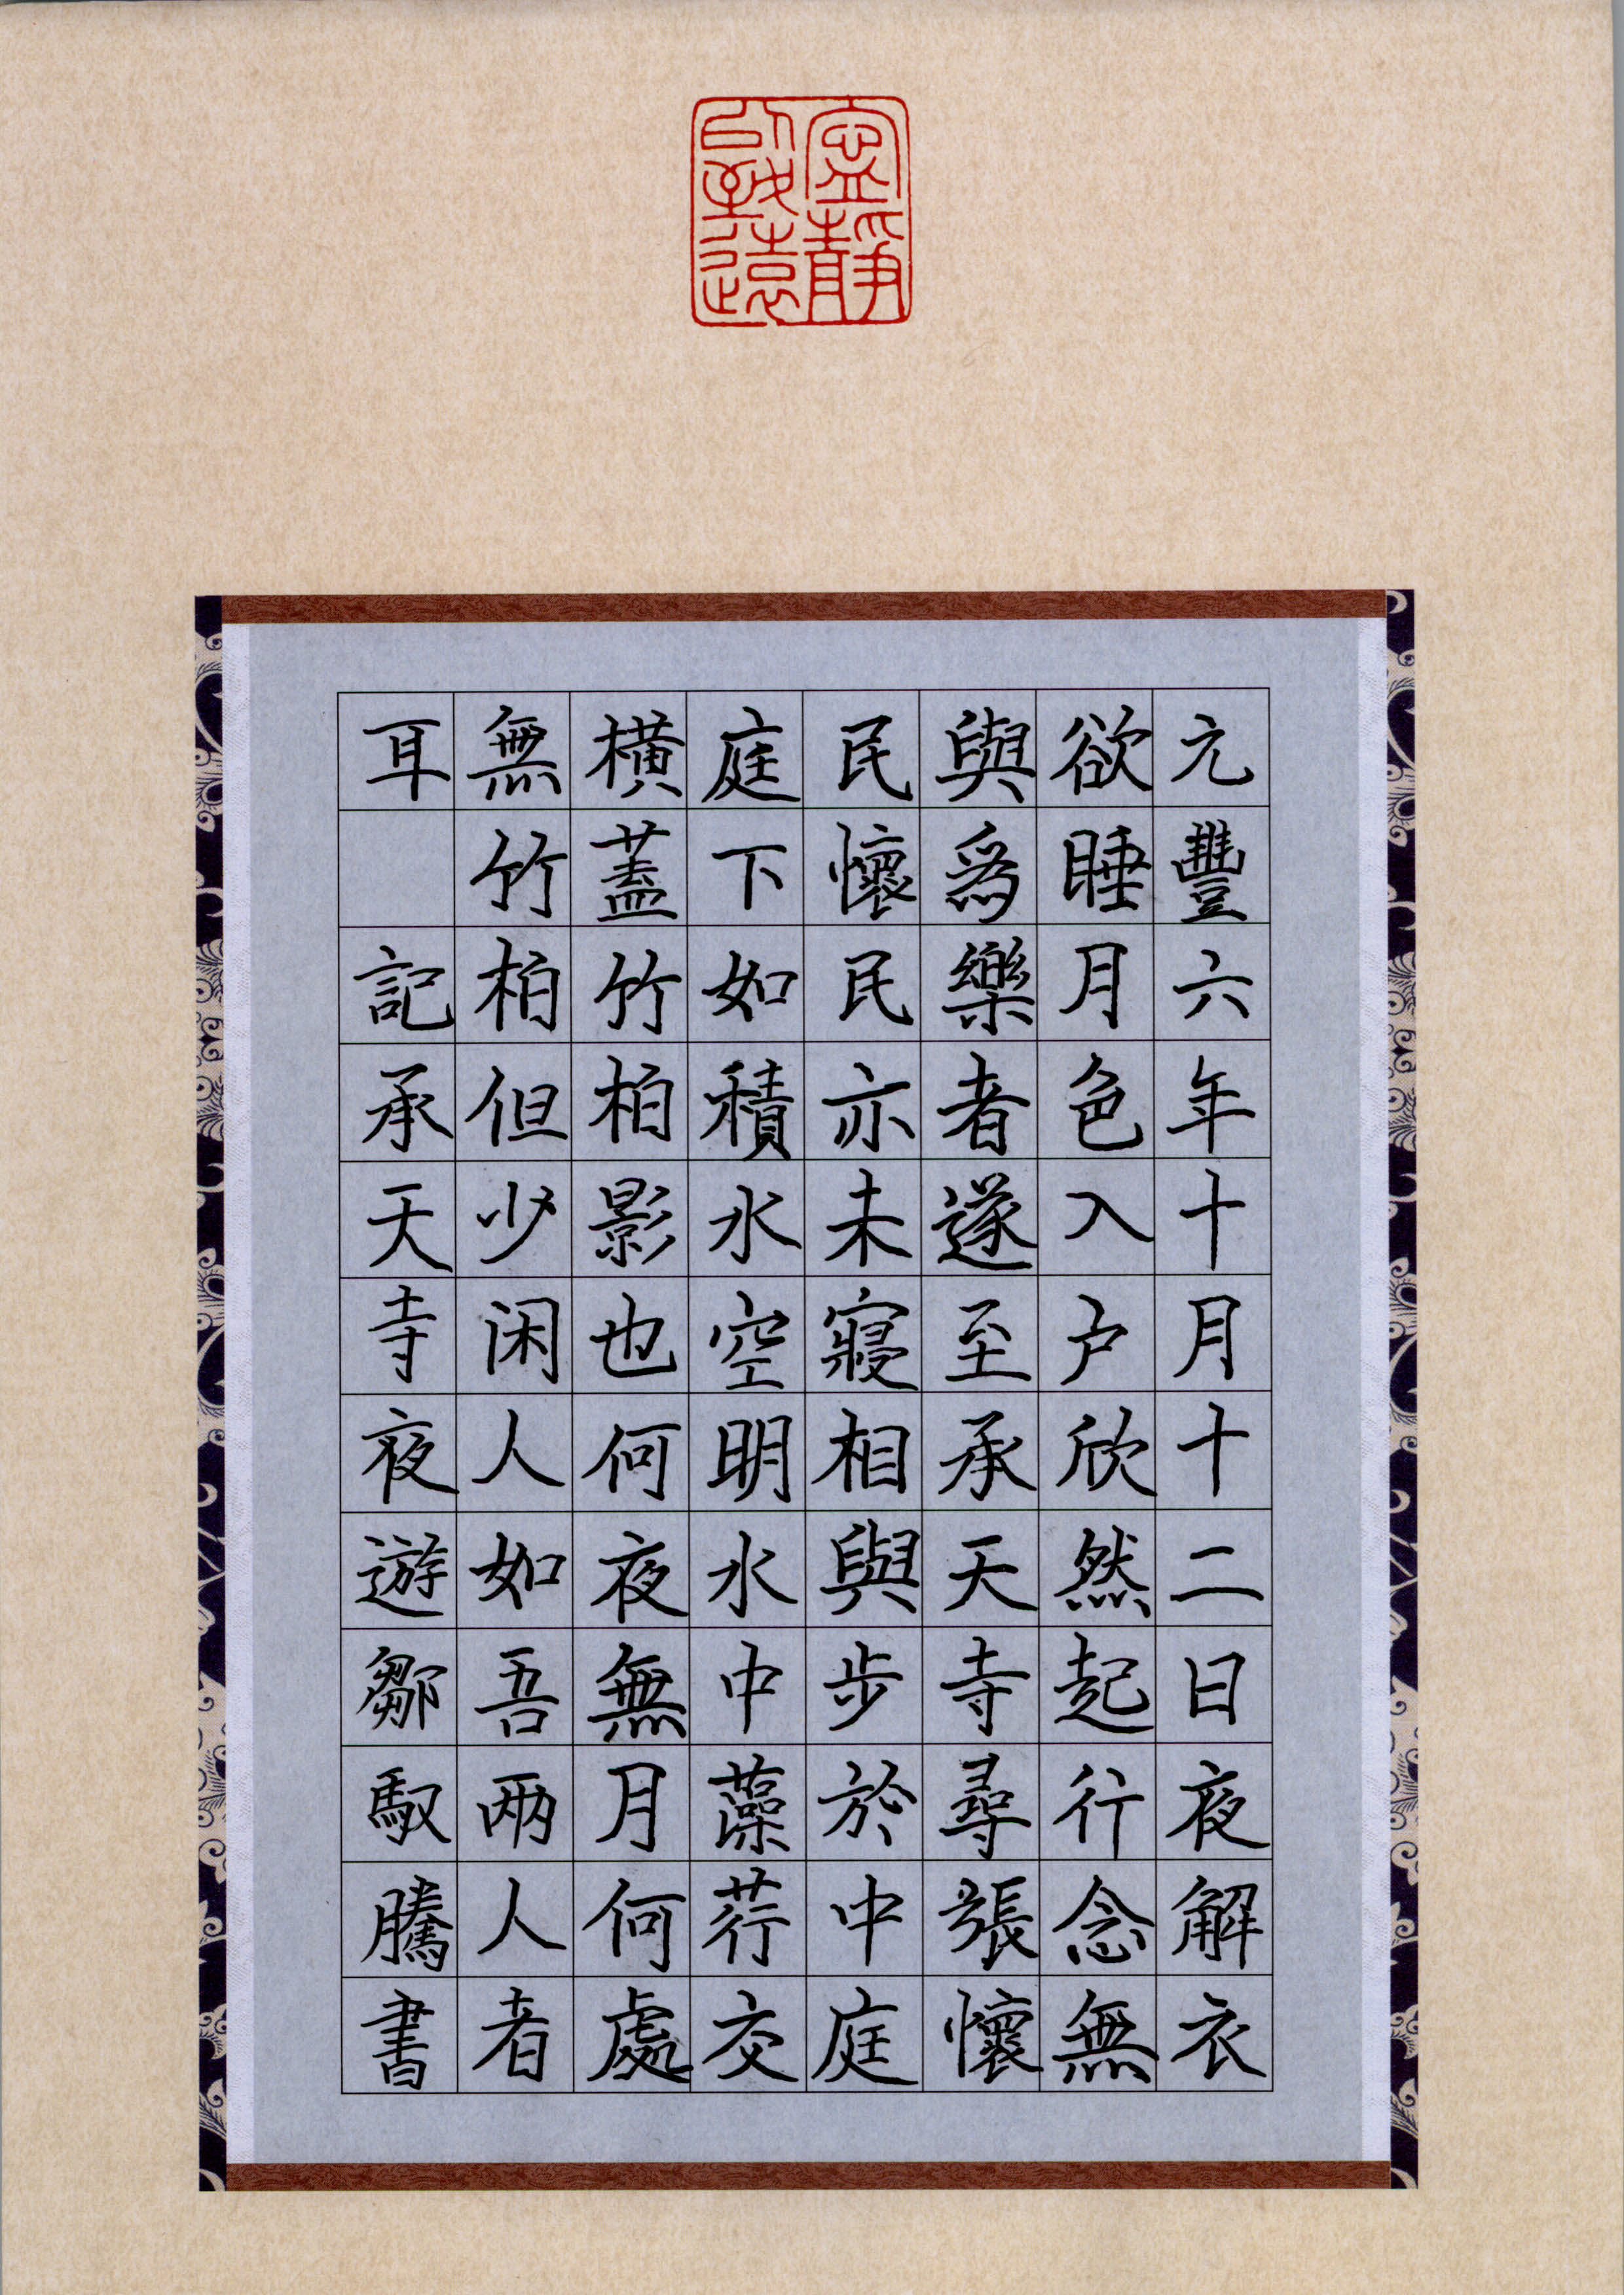 寧靜
致遠
元豐六年十月十二日夜解衣
欲睡月色入户欣然起行念無
與爲樂者遂至承天寺尋張懷
民懷民亦未寢相與步於中庭
庭下如積水空明水中藻荇交
橫蓋竹柏影也何夜無月何處
無竹柏但少闲人如吾兩人者
耳 記承天寺夜遊鄒馭騰書